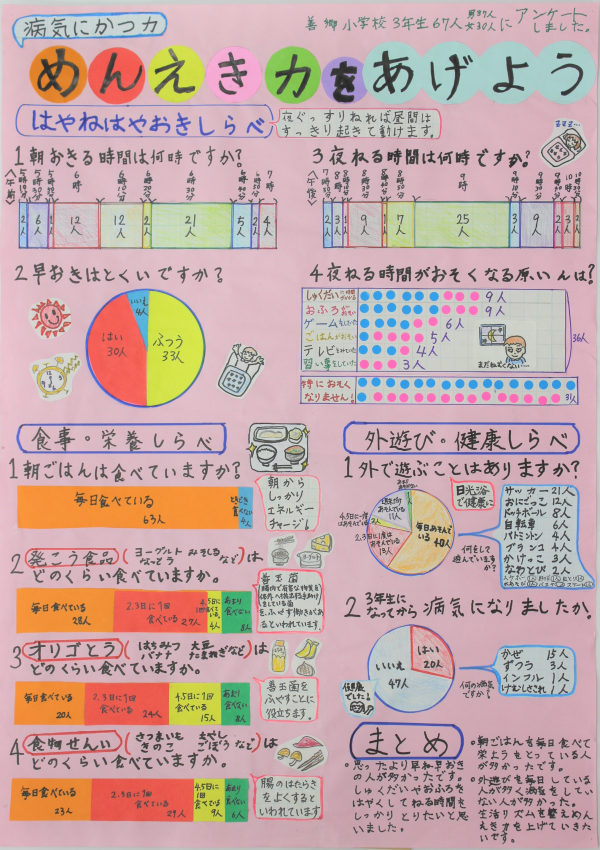 病気にかつ力
善郷小学校3年生67人 男37人 女30人 に アンケートしました。
めんえき力をあげよう
はやねはやおきしらべ
夜ぐっすりねれば昼間は
すっきり起きて動けます。
1 朝おきる時間は何時ですか?
(午前)
6時
7時
2人 6人 1人 12人 12人 2人 21人 5人 2人 4人
3 夜ねる時間は何時ですか?
(午後)
9時
2人 3人 1人 9人 1人 7人 25人 3人 9人 2人 3人 2人
2 早おきはとくいですか?
いいえ 4人
はい 30人
ふつう 33人
4 夜ねる時間がおそくなる原いんは?
しゅくだい 9人
おふろがおそい 9人
ゲームをしていた 6人
ごはんがおそい 5人
テレビをみていた 4人
習い事をしていた 3人
36人
まだねむくない…
特におそく
なりません!
31人
食事・栄養しらべ
1 朝ごはんは食べていますか?
毎日食べている 63人
ときどき食べない 4人
朝から
しっかり
エネルギー
チャージ!
2 発こう食品(ヨーグルト みそしる なっとう など)は
どのくらい食べていますか。
毎日食べている 28人
2.3日に1回食べている 27人
4.5日に1回食べている 4人
あまり食べない 8人
善玉菌
をふせぐ働きがあ
るといわれています
3 オリゴとう(はちみつ 大豆 バナナ たまねぎなど)は
どのくらい食べていますか。
毎日食べている 20人
2.3日に1回食べている 24人
4.5日に1回食べている 15人
あまり食べない 8人
善玉菌を
ふやすことに
役立ちます。
4 食物せんい(さつまいも もやし きのこ ごぼう など)は
どのくらい食べていますか。
毎日食べている 23人
2.3日に1回食べている 29人
4.5日に1回食べている 9人
あまり食べない 6人
腸のはたらき
をよくすると
いわれています
外遊び・健康しらべ
1 外で遊ぶことはありますか?
毎日あそんでいる 40人
2.3日に1度はあそんでいる 13人
4.5日に1度はあそんでいる
日光浴
で健康に
何をして
遊んでいま
すか?
サッカー 21人
おにごっこ 12人
ドッチボール 8人
自転車 6人
バトミントン 4人
ブランコ 4人
かけっこ 3人
なわとび 2人
2 3年生になってから病気になりましたか。
はい 20人
いいえ 47人
健康でした!
何の病気ですか?
かぜ 15人
ずつう 3人
インフル 1人
けむしさされ 1人
まとめ
・思ったより早ね早おき
の人が多かったです。
しゅくだいやおふろを
はやくしてねる時間を
しっかりとりたいと思
いました。
・朝ごはんを毎日食べて
栄ようをとっている人
が多かったです。
・外遊びを毎日している
人が多く病気をしてい
ない人が多かった。
生活リズムを整えめん
えき力を上げていきた
いです。